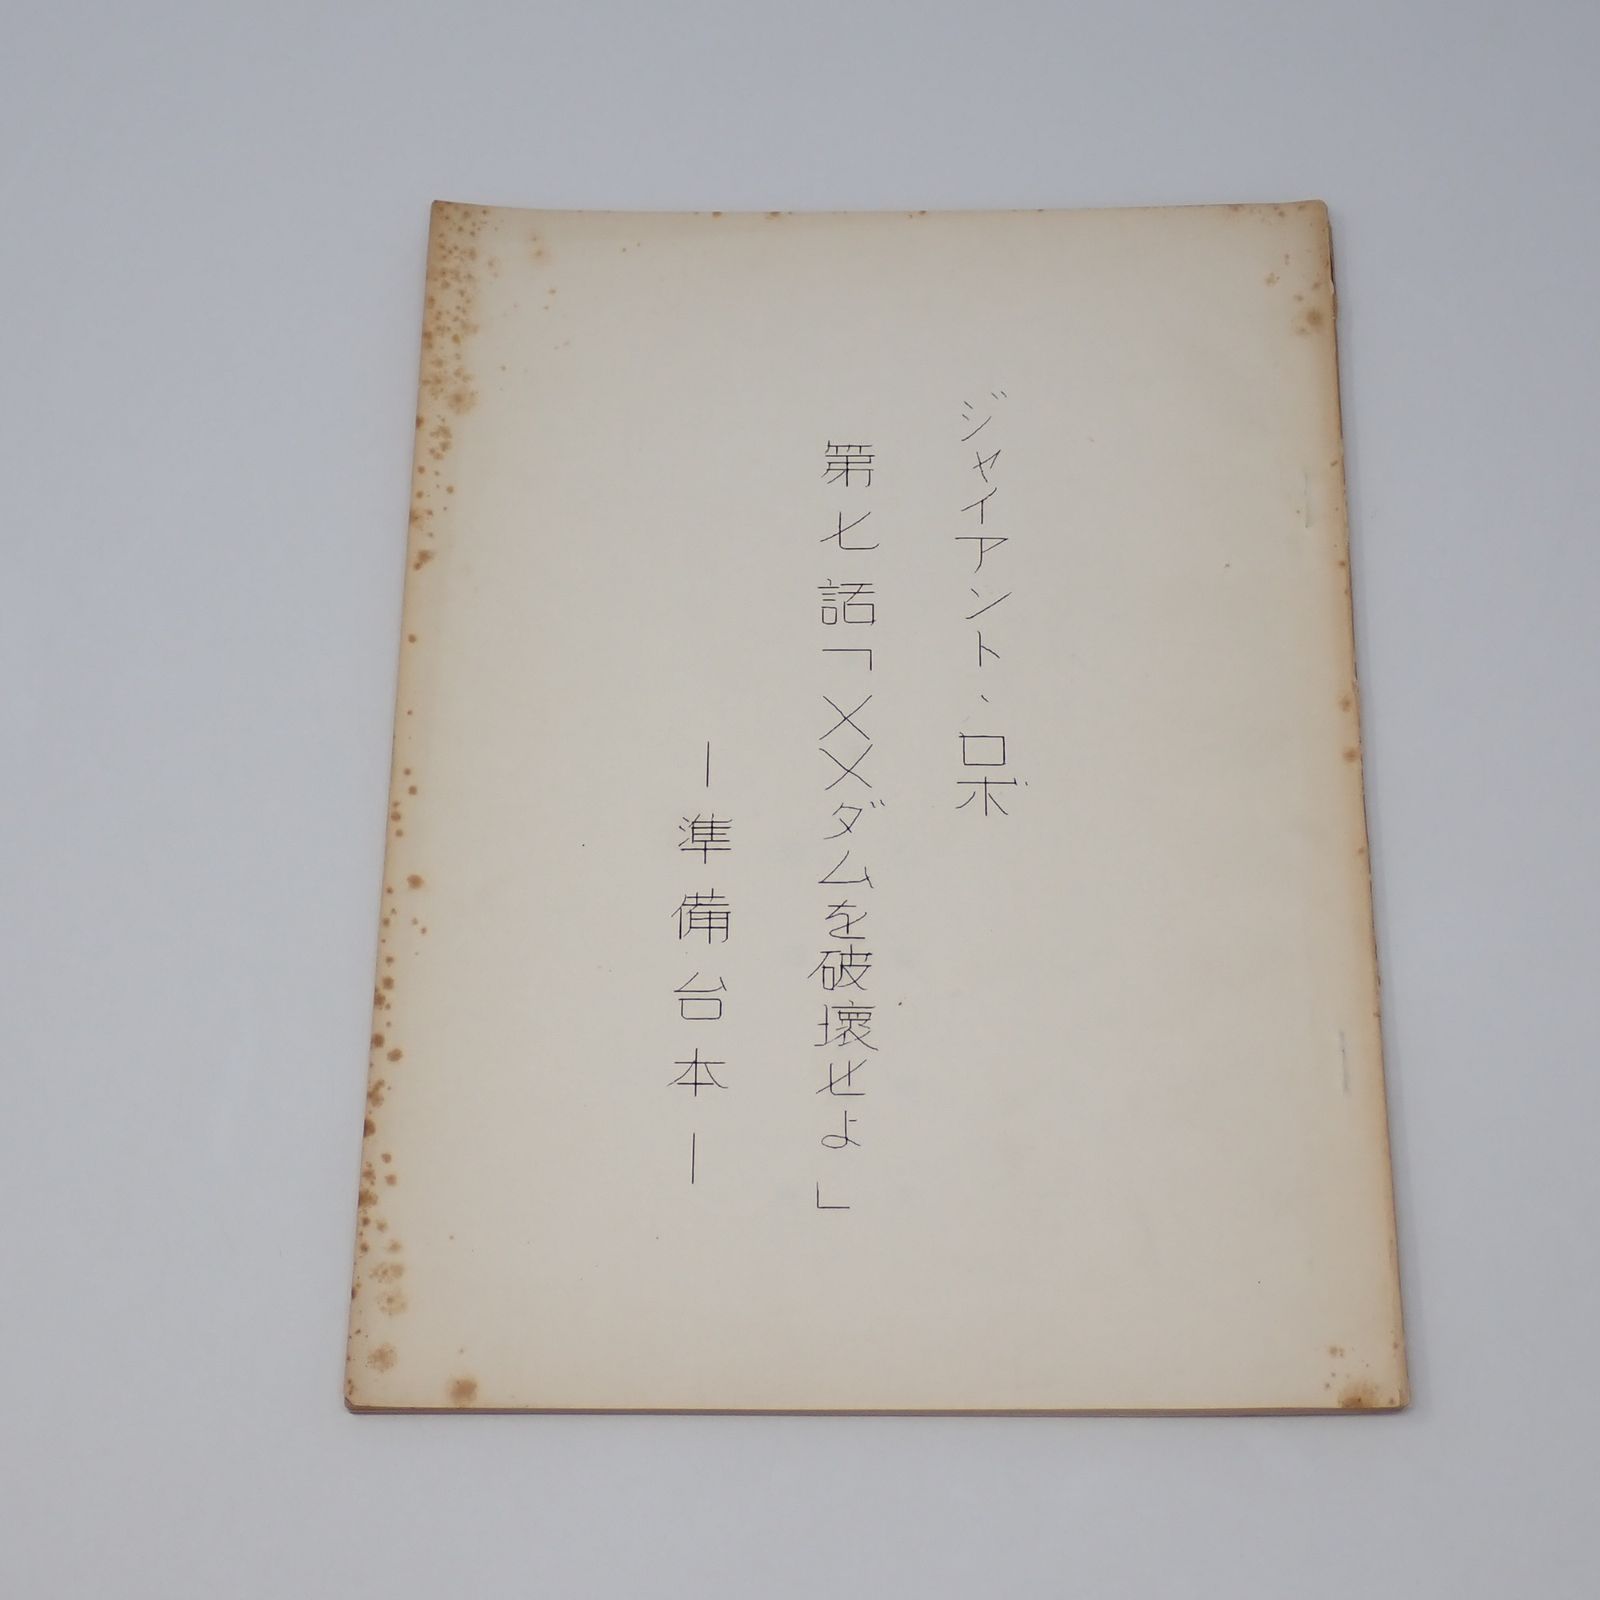 ジャイアント、ロボ
第七話「××ダムを破壊せよ」
―準備台本―